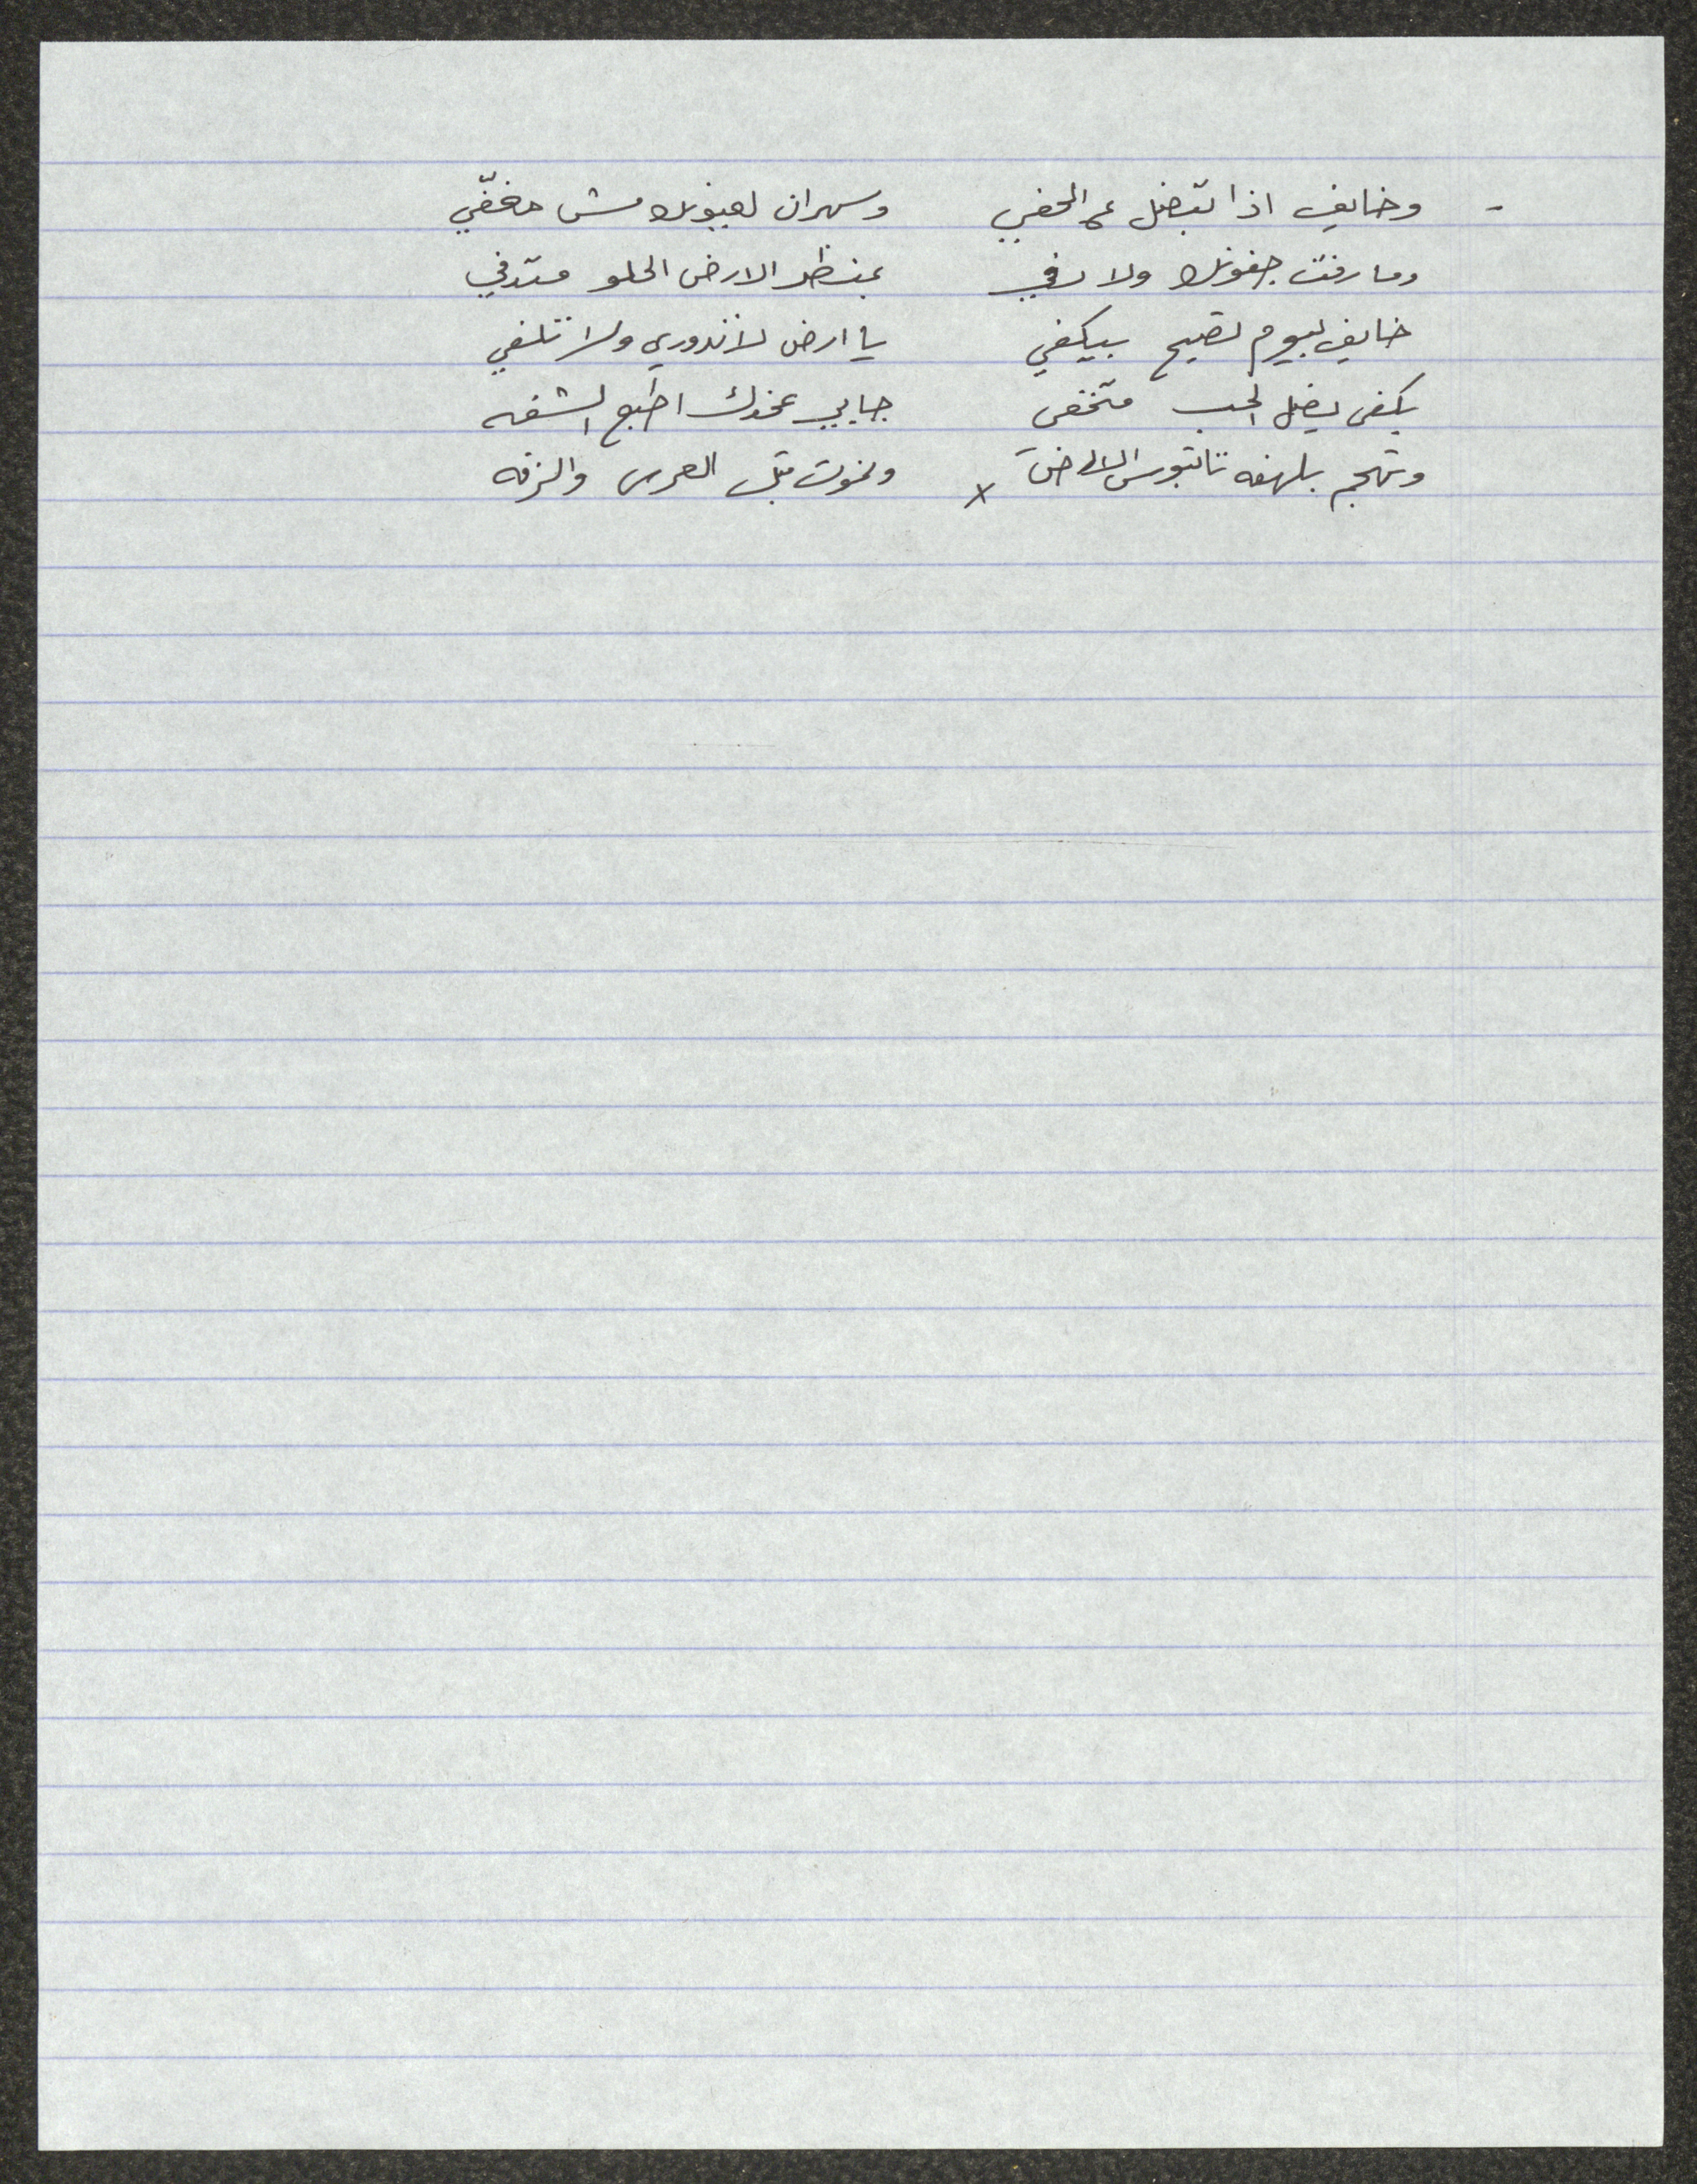 - وخايف اذا بتضل عم تخفي وسهران لعيونك مش مغفّي
وما رفت جفونك ولا رفي بمنظر الارض الحلو متدفي
خايف ليوم تصيح بيكفي يا ارض لا تدوري ولا تلفي
بكفى يضل الحب متخفى جايي عخدك اطبع الشفه
وتهجم بلهفه تا تبوس الارض x ونموت قبل العرس والزفه